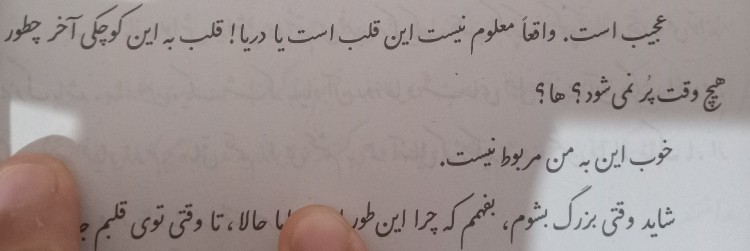 عجیب است. واقعاً معلوم نیست این قلب است یا دریا! قلب به این کوچکی آخر چطور
هیچ وقت پُر نمی‌شود؟ ها؟
خوب این به من مربوط نیست.
شاید وقتی بزرگ بشوم، بفهمم که چرا این‌طور حالا، تا وقتی توی قلبم